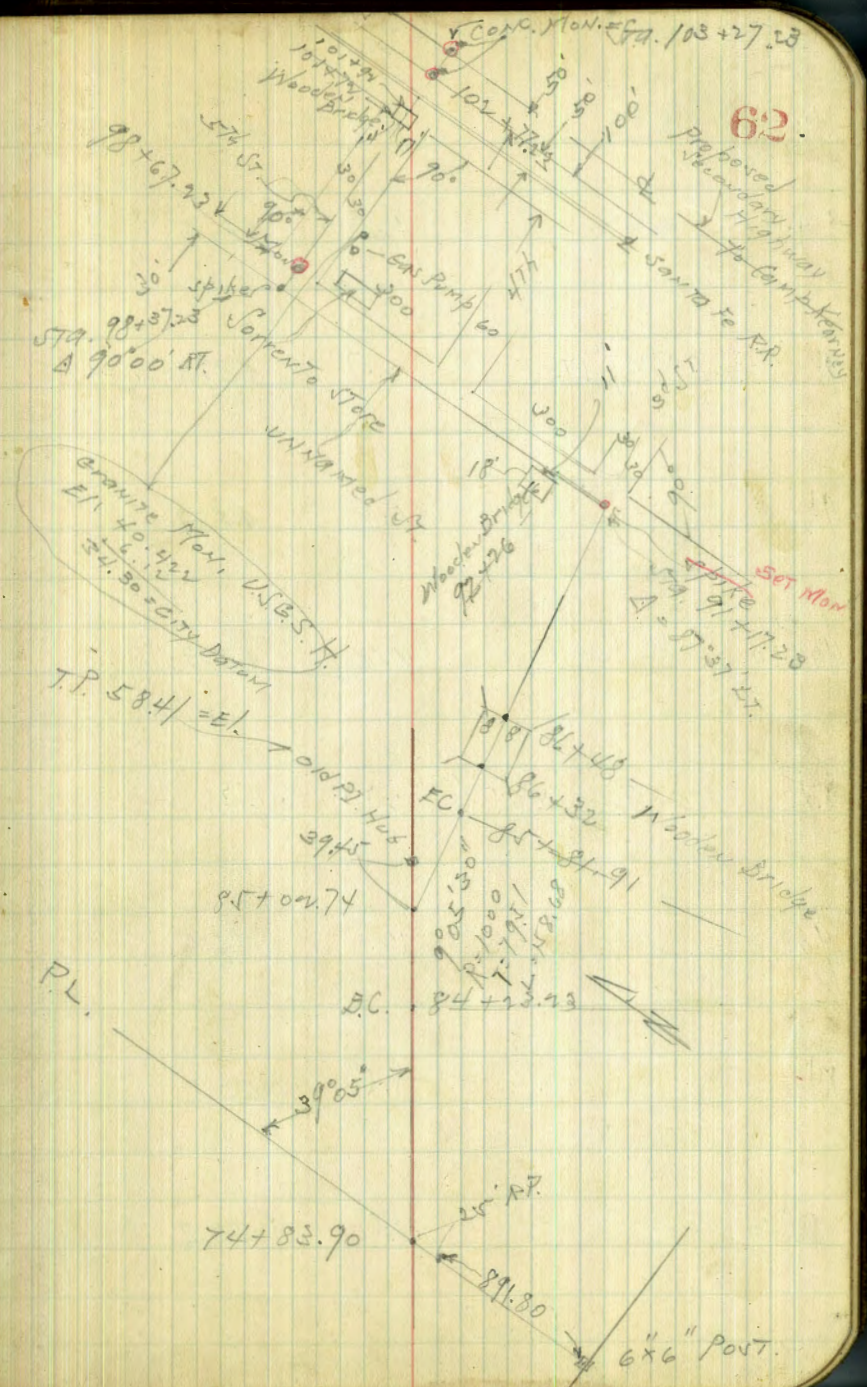 CONC. MON. = Sta. 103+27.23
62
101+94
101+72
Wooden
Bridge
102+77.23
50'
50'
100'
proposed
Secondary
Highway
to Camp Kearney
Santa Fe R.R.
5th St.
98+67.23
90°
30
30
90°
Mon
30'
spike
Gas Pump
200
60
4th
Sta. 98+37.23
Δ 90°00' RT.
Sorrento Store
Unnamed St.
11'
300
18'
30
30
Wooden Bridge
92+26
Spike
SET MON
Sta. 91+17.23
Δ = 87°37' LT.
Granite Mon. U.S.G.S. H.
El. 40.422
6.12
34.30 = City Datum
T.P. 58.41 = El.
Old P.I. Hub
8
8
86+48
86+32
Wooden Bridge
E.C.
85+81.91
39.45
85+02.74
9°05'30"
R=1000
T=79.51
L=158.68
B.C.
84+23.23
P.L.
39°05'
25' R.P.
74+83.90
891.80
6"x6" POST.